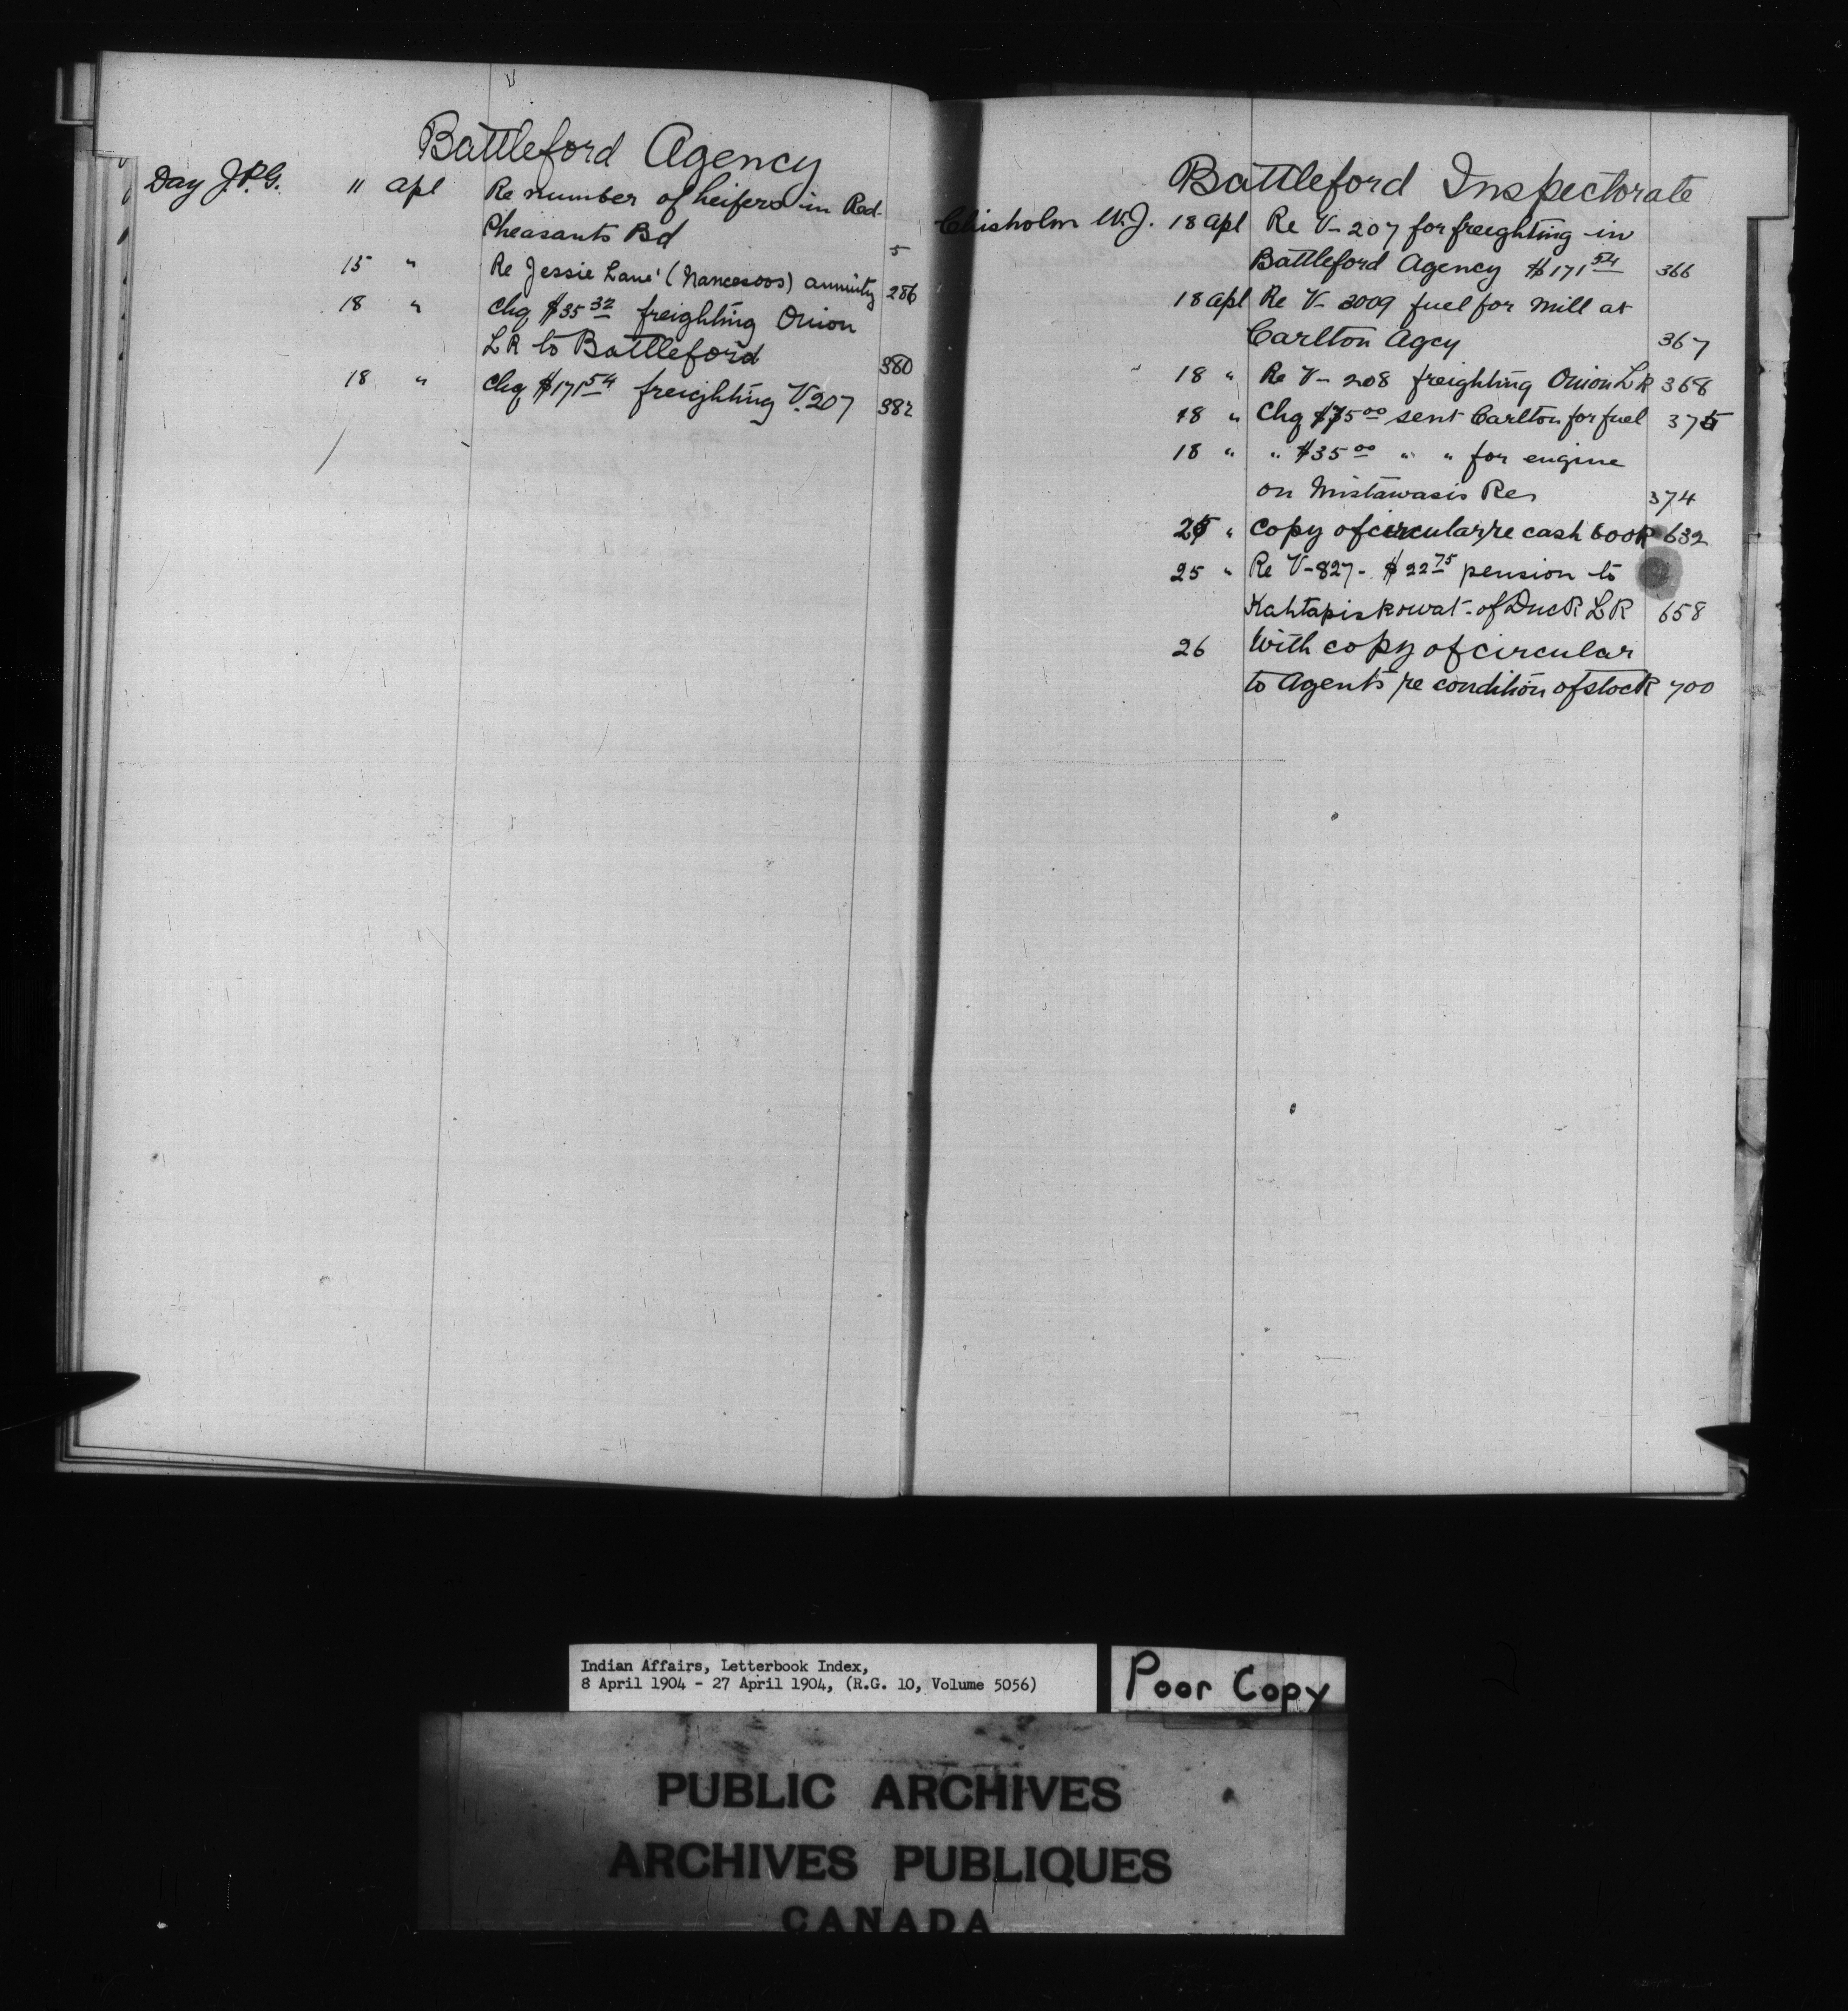 Battleford Agency
Day J.P.G. 11 Apl Re number of heifers in Red
Pheasants Bd 5
15 " Re Jessie Lane' (Nancesoos) annuity 286
18 " Chq $35 32 freighting Onion
LR to Battleford 380
18 " Chq $171 54 freighting V. 207 382
Battleford Inspectorate
Chisholm W.J. 18 Apl Re V- 207 for freighting in
Battleford Agency $171 54 366
18 Apl Re V- 2009 fuel for mill at
Carlton Agcy 367
18 " Re V- 208 freighting Onion LR 368
18 " Chq $75 00 sent Carlton for fuel 375
18 " " $35 00 " " for engine
on Mistawasis Res 374
25 " Copy of circular re cash book 632
25 " Re V-827- $22 75 pension to
Kahtapiskowat - of Duck LR 658
26 With copy of circular
to Agents re condition of stock 700
Indian Affairs, Letterbook Index,
8 April 1904 - 27 April 1904, (R.G. 10, Volume 5056)
Poor Copy
PUBLIC ARCHIVES
ARCHIVES PUBLIQUES
CANADA